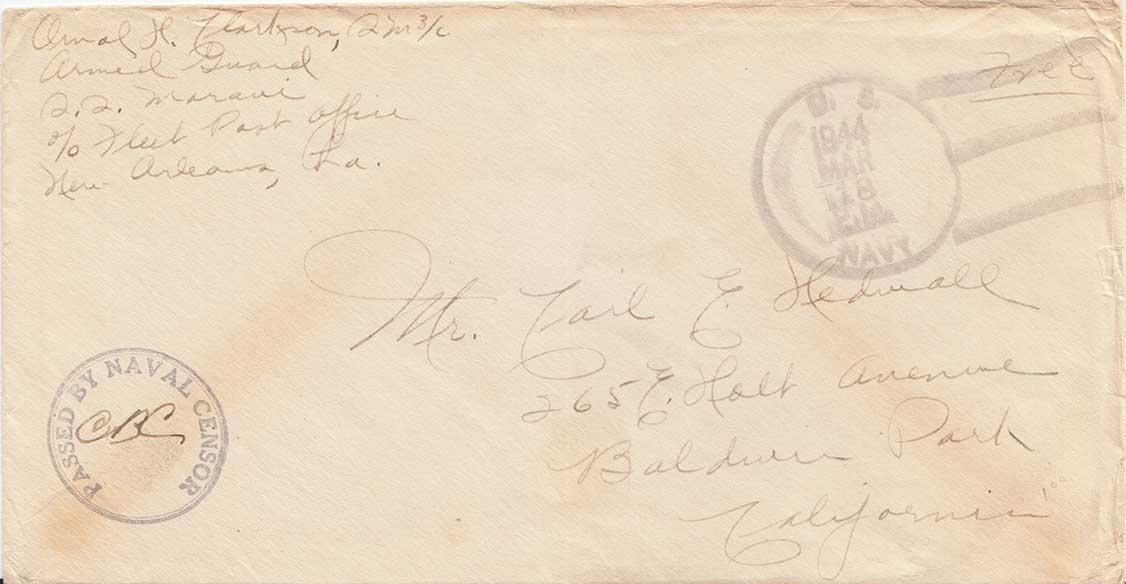 Orval H. Clarkson, SM 3/c
Armed Guard
S.S. Maravi
c/o Fleet Post Office
New Orleans, La.
Free
U. S.
1944
MAR
18
NAVY
Mr. Carl E. Hedwall
265 E. Holt Avenue
Baldwin Park
California
PASSED BY NAVAL CENSOR
CBC
1.00